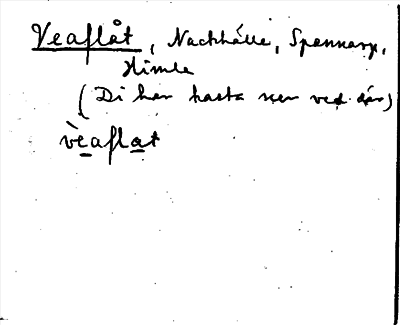 Veaflåt, Nackhälle, Spannarp,
Himle
(Di har kasta ner ved där)
vèaflat